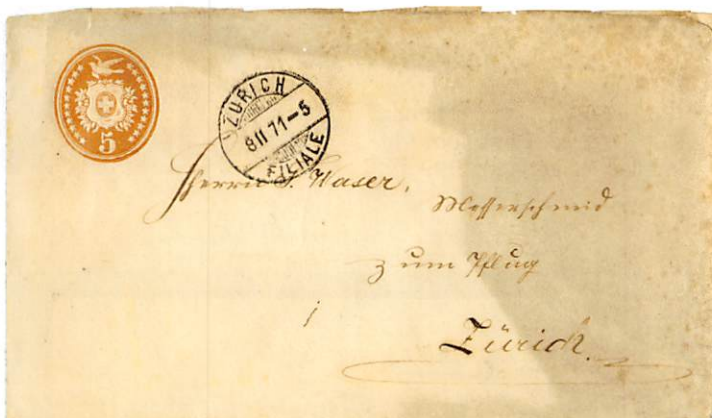 5
ZÜRICH
8 II 71-5
FILIALE
Herrn J. Waser, Messerschmid
zum Pflug
Zürich.